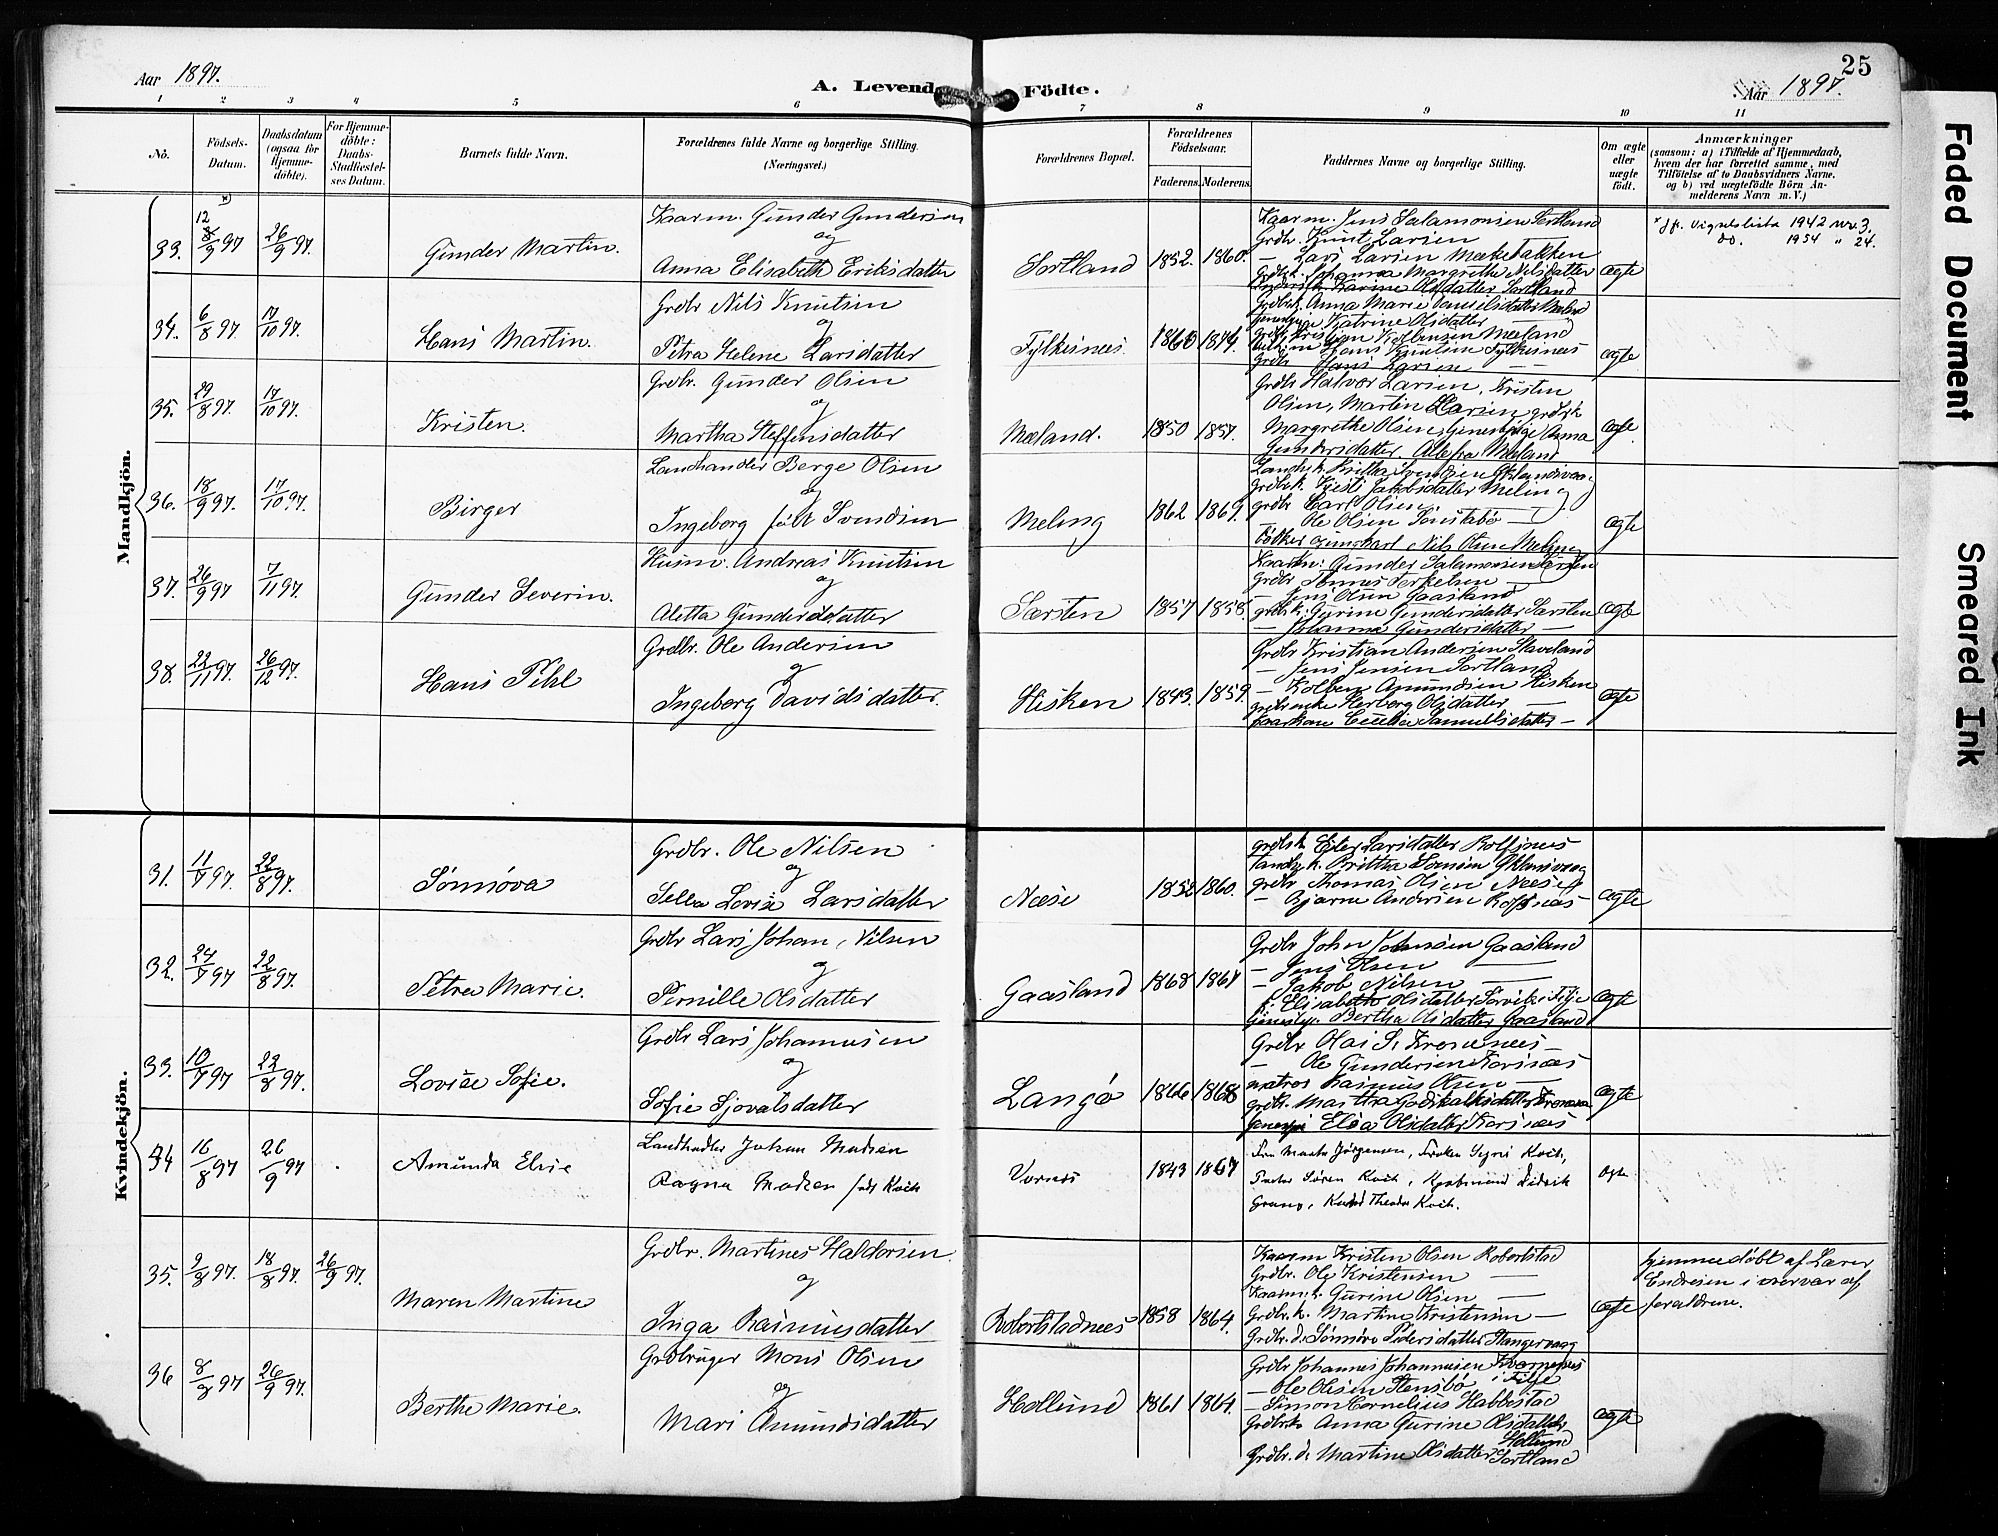 25
Aar 1897.
A. Levend Födte.
Aar 1897.
1 2 3 4 5 6 7 8 9 10 11
No.
Födsels-Datum.
Daabsdatum (ogsaa for Hjemme-döbte).
For Hjemme-döbte: Daabs-Stadfæstel-ses Datum.
Barnets fulde Navn.
Forældrenes fulde Navne og borgerlige Stilling.
(Næringsvei.)
Forældrenes Bopæl.
Forældrenes Födselsaar.
Faderens. Moderens.
Faddernes Navne og borgerlige Stilling.
Om ægte eller uægte födt.
Anmærkninger
(saasom: a) i Tilfælde af Hjemmedaab,
hvem der har forrettet samme, med
Tilföielse af to Daabsvidners Navne.
og b) ved uægtefödte Börn An-
melderens Navn m. V.)
Mandkjön.
33. 12/9 97 26/9 97. Gunder Martin.
Kaarm. Gunder Gundersen
og
Anna Elisabeth Eriksdatter
Sortland 1852. 1860.
Kaarm. Jens Salamonsen Sortland
Grdbr. Knut Larsen
— Lars Larsen Mækebakken
Grdbrk. Johanna Margrethe Nilsdatter
Karine Olsdatter Sortland
ægte
x jfr. vignelsliste 1942 nr. 3.
do. 1954 " 24.
34. 6/8 97 17/10 97. Hans Martin.
Grdbr Nils Knutsen
og
Petra Helene Larsdatter
Fylkesnes. 1860 1874.
Grdbrk. Anna Marie Danielsdatter Meland
Katrine Olsdatter
Meeland
Hans Knutsen Fylkesnes
Grdbr Hans Larsen — —
ægte
35. 29/8 97. 17/10 97. Kristen.
Grdbr. Gunder Olsen
og
Martha Steffensdatter
Meland. 1850 1857.
Grdbr Halvor Larsen, Kristen
Olsen, Martin Larsen, grdbrk
Margrethe Olsen, Anna
Gundersdatter. Alle fra Meland
ægte
36. 18/9 97. 17/10 97. Birger
Landhandler Berge Olsen
og
Ingeborg født Svendsen
Meling 1862 1869.
Landh. k. Britha Svendsen
grdbrk. Kristi Jakobsdatter Meling
grdbr Carl Olsen
— Ole Olsen Sønstabø
Nils Olsen Meling
ægte
37. 26/9 97 7/11 97. Gunder Severin.
Husm. Andreas Knutsen
og
Aletta Gundersdatter
Særsten 1857 1858.
Kaarm. Gunder Salamonsen
Grdbr Tønnes Terkelsen —
— Jens Olsen Gaasland
grdbrk. Gurine Gundersdatter Særsten
— Johanna Gundersdatter —
ægte
38. 22/11 97. 26/12 97. Hans Pihl
Grdbr. Ole Andersen
og
Ingeborg Davidsdatter.
Hisken 1843. 1859.
Grdbr Kristian Andersen Staveland
— Jens Jensen Sortland
— Kolben Amundsen Hisken
Herborg Olsdatter —
Cecilia Samuelsdatter —
ægte
Kvindekjön.
31. 11/7 97. 22/8 97. Sønnøva
Grdbr. Ole Nilsen
og
Sella Lovise Larsdatter
Næse 1852 1860.
grdbrk. Eler Larsdatter Rolfsnes
Landh. k. Brittha
grdbr Thomas Olsen Næse
— Bjarne Andersen Rolfsnæs
ægte
32. 24/7 97 22/8 97. Petrea Marie.
Grdbr Lars Johan Nilsen
og
Pernille Olsdatter
Gaasland 1868 1867
Grdbr John Johnsøn Gaasland
— Jens Olsen —
— Jakob Nilsen —
Elisabeth Olsdatter Sørvik i Fitje
Bertha Olsdatter Gaasland
ægte
33. 10/7 97 22/8 97. Lovise Sofie.
Grdbr Lars Johannesen
og
Sofie Sjovatsdatter
Langø 1866 1868
Grdbr Olai S. Kronenes —
— Ole Gundersen Korsnæs
matros Rasmus Olsen —
grdbr. Martha
Elsa Olsdatter Korsnæs
ægte
34 16/8 97 26/9 97 Amunda Elvie
Landhandler Johan Madsen
Ragna Madsen født Koch
Vornes 1843 1867
Fru Marta Jørgensen, Frøken Signe Koch,
Pastor Søren Koch, Didrik
Gran, Theodor Koch.
ægte
35. 9/8 97. 18/8 97. 26/9 97. Maren Martine
Grdbr. Martines Haldorsen.
og
Inga Rasmusdatter
Robertstadnees 1858 1864.
Kaarm Kristen Olsen Robertstad
Grdbr. Ole Kristensen —
Kaarm. k. Gurine Olsen —
Grdbr. k. Martine Kristensen —
Grdbr. d. Sønnøve Pedersdatter Stangervaag
ægte
hjemmedøbt af Lærer
Endresen i overvær af
forældrene.
36 8/8 97 26/9 97. Berthe Marie.
Grdbruger Mons Olsen
og
Mari Amundsdatter
Hollund 1861 1864.
Grdbr Johannes Johannesen
— Ole Olsen Stensbø i Fitje
— Simon Cornelius Habbestad
Grdbrk Anna Gurine Olsdatter,
Hollund
Grdbr. d. Martine Olsdatter Sortland
ægte
Faded Document
Smeared Ink